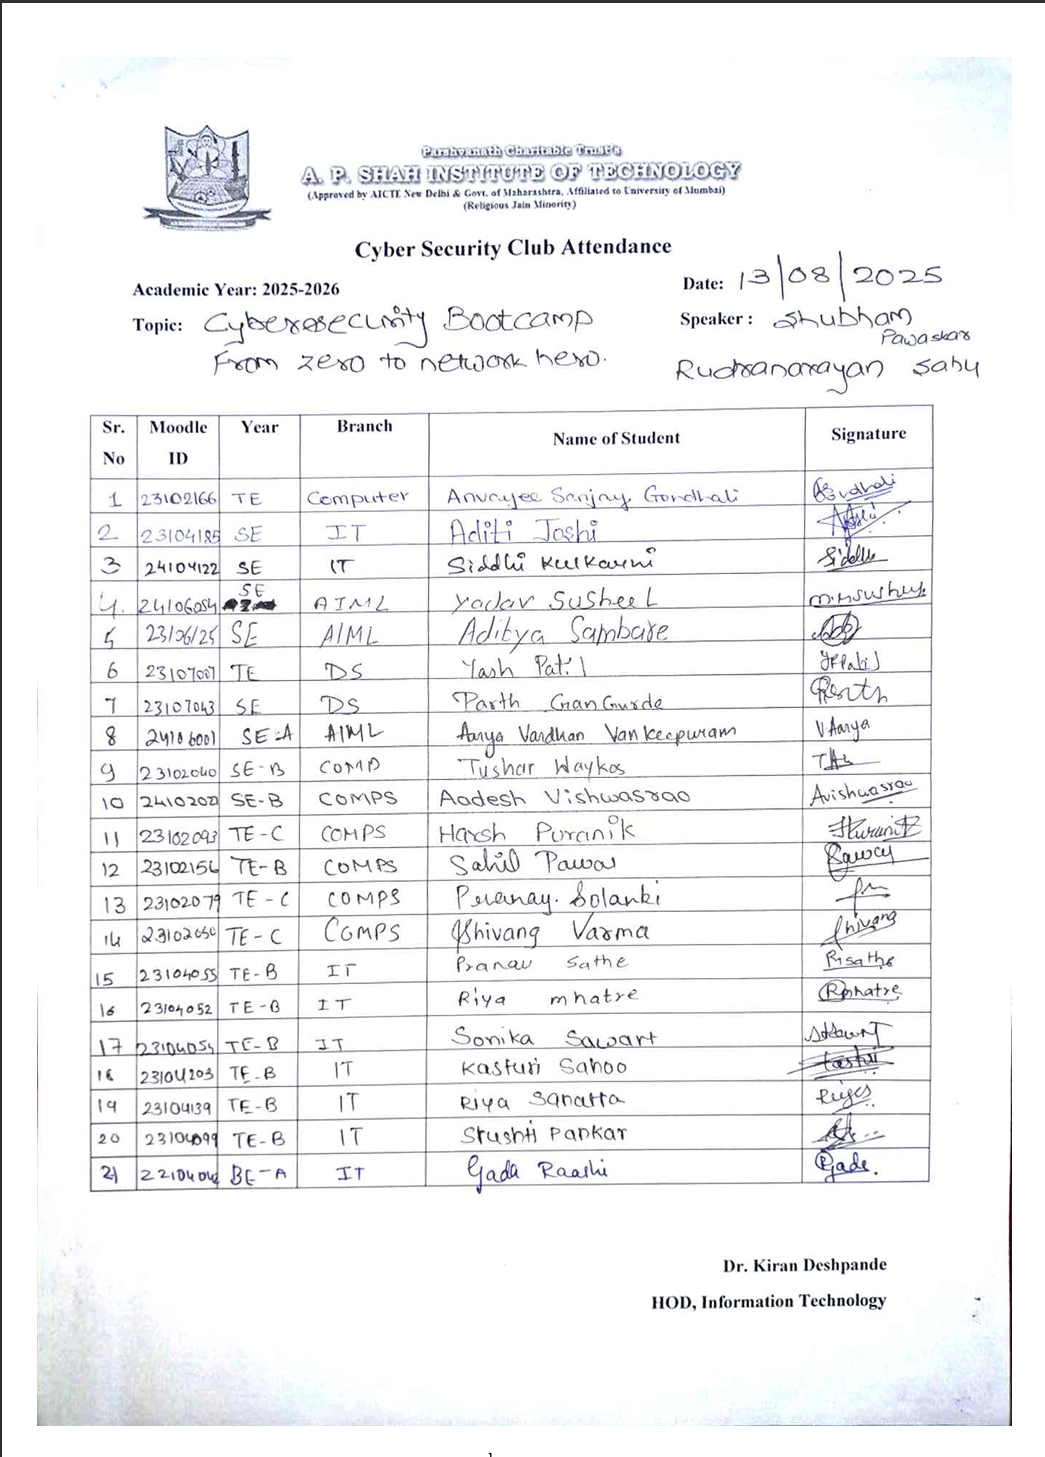 Parshvanath Charitable Trust's
A. P. SHAH INSTITUTE OF TECHNOLOGY
(Approved by AICTE New Delhi & Govt. of Maharashtra, Affiliated to University of Mumbai)
(Religious Jain Minority)
Cyber Security Club Attendance
Academic Year: 2025-2026 Date: 13/08/2025
Topic: Cybersecurity Bootcamp Speaker : Shubham Pawaskar
From zero to network hero. Rudranarayan Sahu
Sr. No Moodle ID Year Branch Name of Student Signature
1 23102166 TE Computer Sanjay Gondhali
2 23104185 SE IT Aditi Joshi
3 24104122 SE IT Siddhi Kulkarni Siddhi
4. 24106054 SE AIML Yadav Susheel
5 SE AIML Aditya Sambare
6 TE DS Yash Patil
7 23107043 SE DS Parth GanGurde Parth
8 24106001 SE-A AIML Aarya Vardhan Vankeepuram V Aarya
9 23102060 SE-B COMP Tushar Waykos
10 SE-B COMPS Aadesh Vishwasrao Avishwasrao
11 23102093 TE-C COMPS Harsh Puranik
12 23102156 TE-B COMPS Sahil Pawar
13 23102079 TE-C COMPS Pranay Solanki
14 TE-C COMPS Shivang Varma Shivang
15 23104055 TE-B IT Pranav Sathe Prsathe
16 23104052 TE-B IT Riya mhatre Rmhatre
17 23104054 TE-B IT Sonika Sawart
18 23104203 TE-B IT Kasturi Sahoo
19 23104139 TE-B IT Riya
20 23104099 TE-B IT Srushti Pankar
21 BE-A IT Gada Raashi
Dr. Kiran Deshpande
HOD, Information Technology